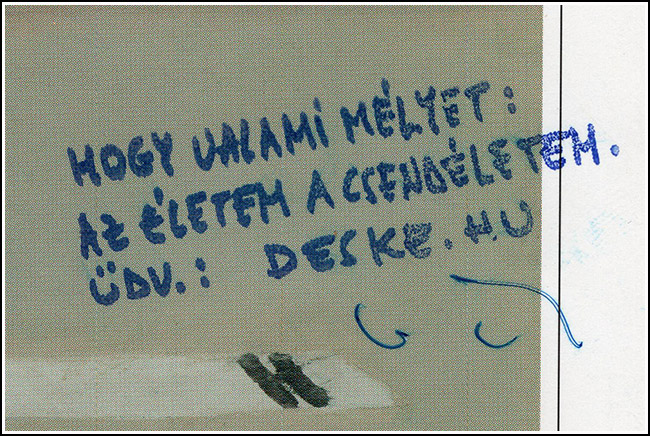 HOGY VALAMI MÉLYET:
AZ ÉLETEM A CSENDÉLETEM.
ÜDV.: DESKE.HU